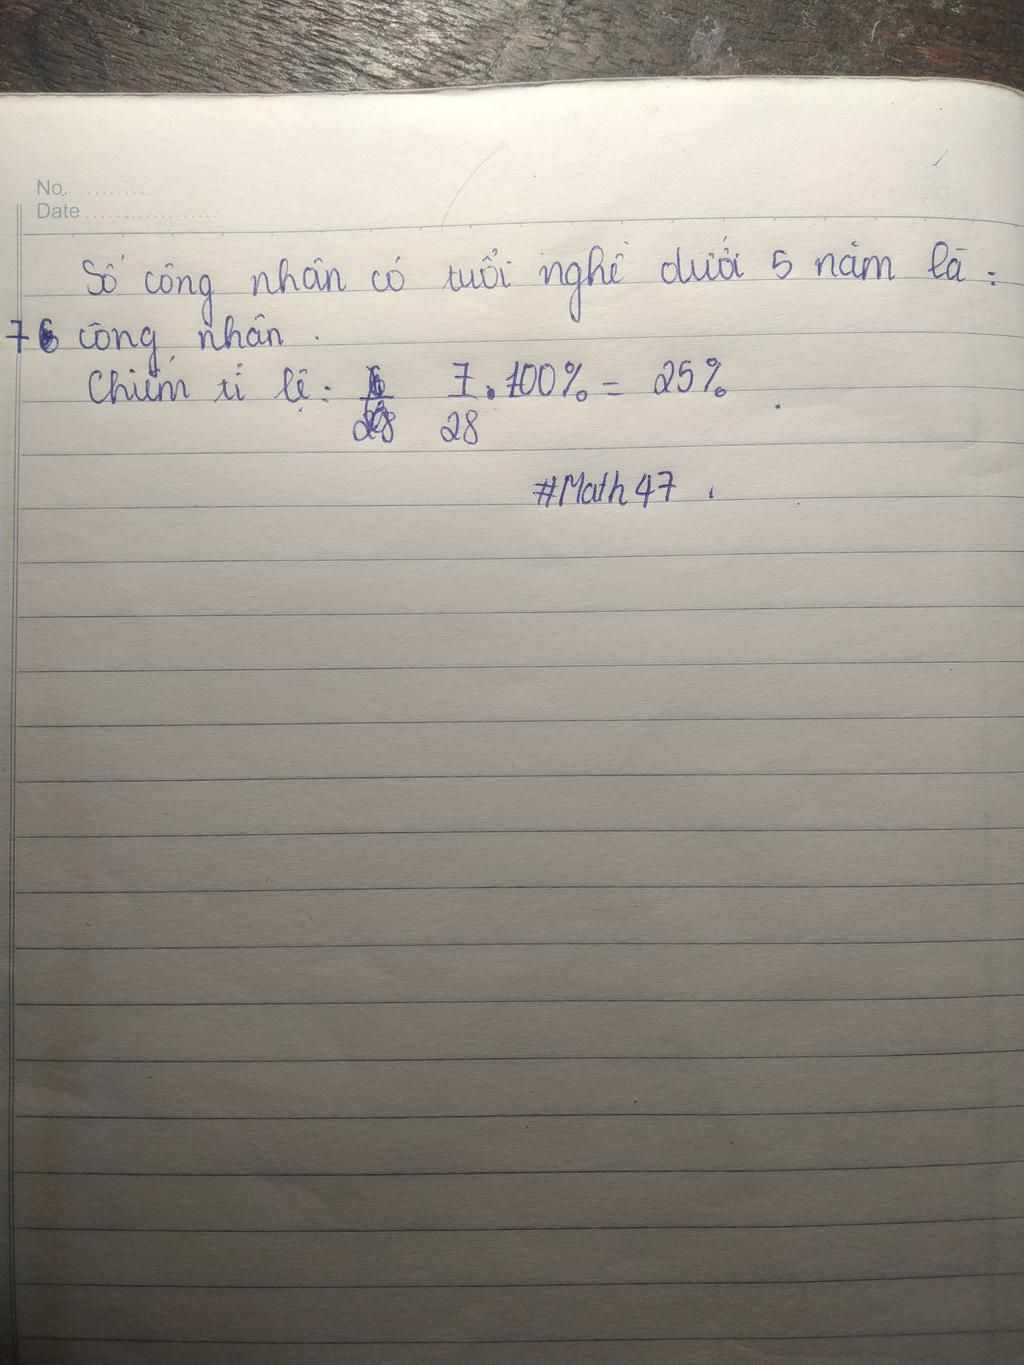 No.
Date
Số công nhân có tuổi nghề dưới 5 năm là:
7 công nhân.
Chiếm tỉ lệ: 7/28 . 100% = 25%
#Math47